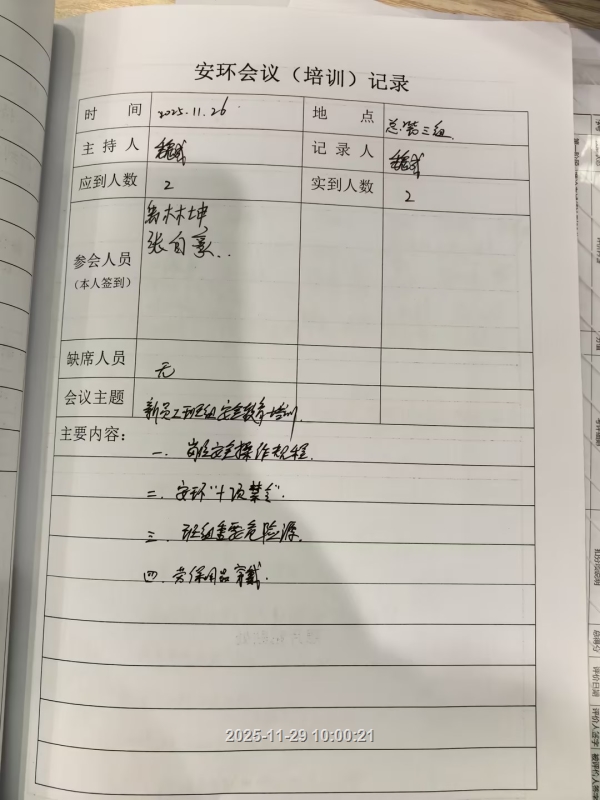 安环会议（培训）记录
时 间 2025.11.26 地 点 总装三组
主 持 人 记 录 人
应到人数 2 实到人数 2
参会人员
（本人签到）
林坤
张自豪
缺席人员 无
会议主题 新员工班组安全教育培训
主要内容：
一. 岗位安全操作规程.
二. 安环"十项禁令".
三. 班组重要危险源.
四. 劳保用品穿戴.
2025-11-29 10:00:21
总得分
评价日期
评价人签字